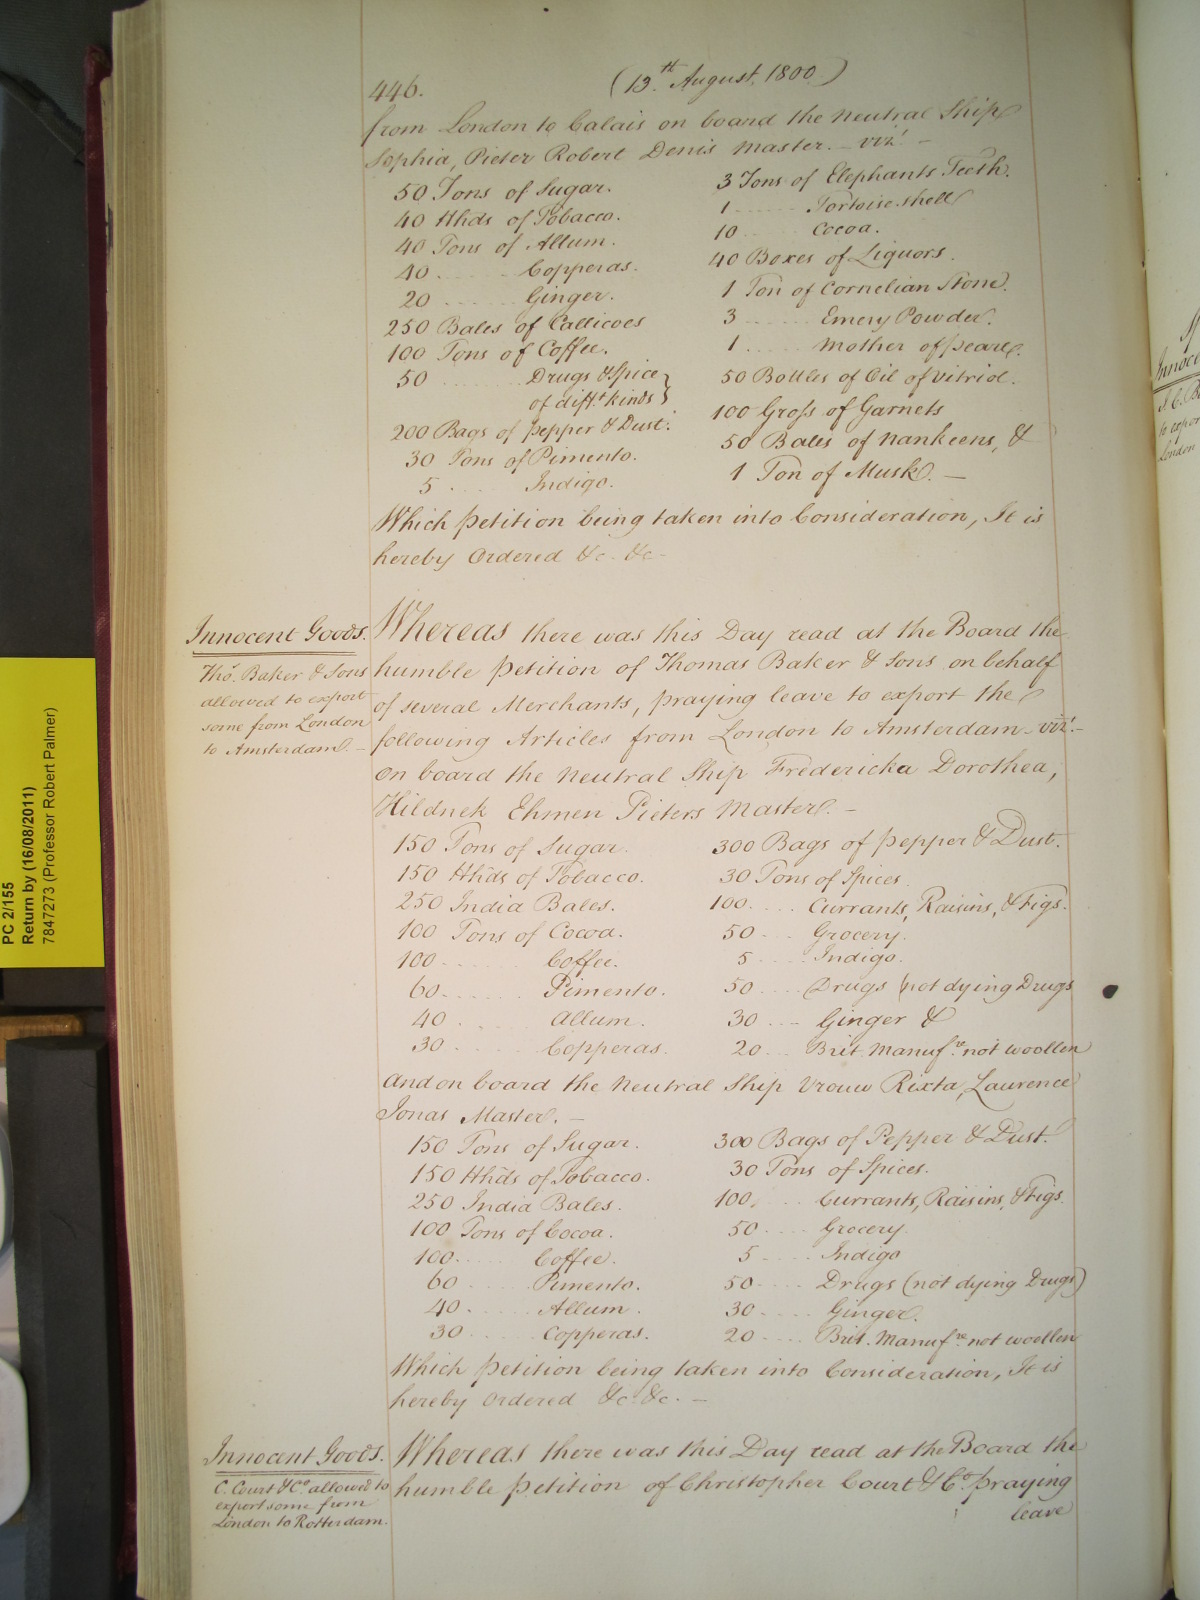 446.
(13.th August, 1800)
from London to Calais on board the neutral Ship
Sophia, Pieter Robert Denis Master. — vizt. —
50 Tons of Sugar.
40 Hhds of Tobacco.
40 Tons of Allum.
40 ...... Copperas.
20 ...... Ginger.
250 Bales of Callicoes
100 Tons of Coffee.
50 ...... Drugs & Spice }
of difft. kinds }
200 Bags of pepper & Dust.
30 Tons of Pimento.
5 .... Indigo.
3 Tons of Elephants Teeth.
1 ...... Tortoiseshell
10 ..... Cocoa.
40 Boxes of Liquors.
1 Ton of Cornelian Stone.
3 ...... Emery Powder.
1 ...... Mother of pearl.
50 Bottles of Oil of vitriol.
100 Gross of Garnets
50 Bales of nankeens, &
1 Ton of Musk. —
Which petition being taken into Consideration, It is
hereby Ordered &c. &c.
Innocent Goods.
Tho.s Baker & Sons
allowed to export
some from London
to Amsterdam. —
Whereas there was this Day read at the Board the
humble petition of Thomas Baker & Sons on behalf
of several Merchants, praying leave to export the
following Articles from London to Amsterdam — vizt. —
on board the neutral Ship Fredericka Dorothea,
Hildnek Ehmen Pieters Master. —
150 Tons of Sugar.
150 Hhds of Tobacco.
250 India Bales.
100 Tons of Cocoa.
100 ...... Coffee.
60 ...... Pimento.
40 ...... Allum.
30 ...... Copperas.
300 Bags of pepper & Dust.
30 Tons of Spices
100 .... Currants, Raisins, & Figs.
50 .... Grocery.
5 .... Indigo.
50 .... Drugs (not dying Drugs
30 ... Ginger &
20 ... Brit. Manuf.re not woollen
and on board the neutral Ship Vrouw Rixta, Laurence
Jonas Master. —
150 Tons of Sugar.
150 Hhds of Tobacco.
250 India Bales.
100 Tons of Cocoa.
100 ...... Coffee.
60 ...... Pimento.
40 ...... Allum.
30 ...... Copperas.
300 Bags of Pepper & Dust.
30 Tons of Spices.
100 .... Currants, Raisins, & Figs.
50 .... Grocery.
5 .... Indigo
50 .... Drugs (not dying Drugs)
30 .... Ginger.
20 .... Brit. Manuf.re not woollen
Which petition being taken into Consideration, It is
hereby Ordered &c. &c. —
Innocent Goods.
C. Court & Co. allowed to
export some from
London to Rotterdam.
Whereas there was this Day read at the Board the
humble petition of Christopher Court & Co. praying
leave
PC 2/155
Return by (16/08/2011)
7847273 (Professor Robert Palmer)
London